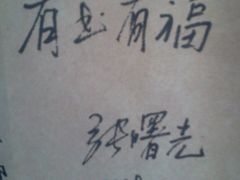 有书有福
张曙光